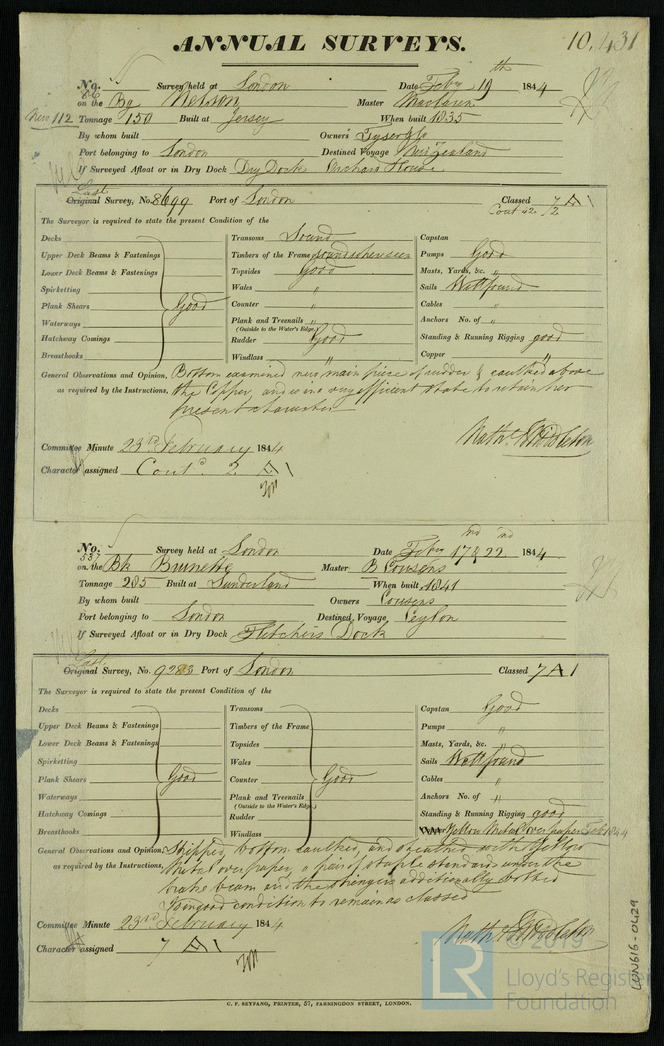 ANNUAL SURVEYS.
10,431
No. 86 Survey held at London Date Feby 19th 1844
on the Bg Nelson Master
New 112 Tonnage 150 Built at Jersey When built 1835
By whom built Owners
Port belonging to London Destined Voyage New Zealand
If Surveyed Afloat or in Dry Dock Dry Dock Orchard House
Last
Original Survey, No. 8699 Port of London Classed 7 A 1
Cont 42 /2
The Surveyor is required to state the present Condition of the
Decks Transoms Sound Capstan
Upper Deck Beams & Fastenings Timbers of the Frame Pumps Good
Lower Deck Beams & Fastenings Topsides Good Masts, Yards, &c. "
Spirketting Wales Sails Well found
Plank Shears Good Counter " Cables "
Waterways Plank and Treenails Anchors No. of "
(Outside to the Water's Edge.)
Hatchway Comings Rudder Good Standing & Running Rigging good
Breasthooks Windlass " Copper "
General Observations and Opinion, Bottom examined new main piece of rudder & caulked above
as required by the Instructions, the Copper, and is in a very efficient state to retain her
present character
Nathl Middleton
Committee Minute 23rd February 1844
Character assigned Contd. 2 A 1
No. 537 Survey held at London Date Feby 17 & 22nd 1844
on the Bk Brunette Master B Cousens
Tonnage 285 Built at Sunderland When built 1841
By whom built Owners Cousens
Port belonging to London Destined Voyage Ceylon
If Surveyed Afloat or in Dry Dock Fletchers Dock
Last
Original Survey, No. 9283 Port of London Classed 7 A 1
The Surveyor is required to state the present Condition of the
Decks Transoms Capstan Good
Upper Deck Beams & Fastenings Timbers of the Frame Pumps "
Lower Deck Beams & Fastenings Topsides Masts, Yards, &c. "
Spirketting Wales Sails Well found
Plank Shears Good Counter Good Cables "
Waterways Plank and Treenails Anchors No. of "
(Outside to the Water's Edge.)
Hatchway Comings Rudder Standing & Running Rigging good
Breasthooks Windlass Yellow Metal over paper Feb 1844
General Observations and Opinion, Stripped bottom caulked, and sheathed with Yellow
as required by the Instructions, Metal over paper, a pair of staple standards under the
brake beam and the stringers additionally bolted
In good condition to remain as classed
Nathl Middleton
Committee Minute 23rd February 1844
Character assigned 7 A 1
LR © 2019
Lloyd's Register
Foundation
LON616-0429
C. F. SEYFANG, PRINTER, 57, FARRINGDON STREET, LONDON.